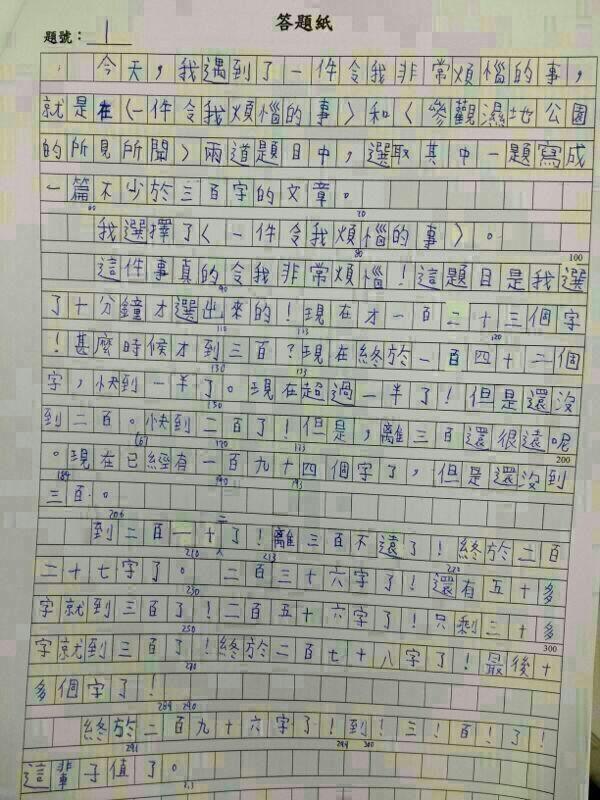 答題紙
題號：1
今天，我遇到了一件令我非常煩惱的事，
就是在〈一件令我煩惱的事〉和〈參觀濕地公園
的所見所聞〉兩道題目中，選取其中一題寫成
一篇不少於三百字的文章。
60 70
我選擇了〈一件令我煩惱的事〉。
80 100
這件事真的令我非常煩惱！這題目是我選
90
了十分鐘才選出來的！現在才一百二十三個字
110 113 120
！甚麼時候才到三百？現在終於一百四十二個
130 133
字，快到一半了。現在超過一半了！但是還沒
150
到二百。快到二百了！但是，離三百還很遠呢
161 170 173 200
。現在已經有一百九十四個字了，但是還沒到
184 190 193
三百。
206 二
到二百一十了！離三百不遠了！終於二百
210 213 220
二十七字了。二百三十六字了！還有五十多
230
字就到三百了！二百五十六字了！只剩三十多
250 300
字就到三百了！終於二百七十八字了！最後十
270
多個字了！
284 290
終於二百九十六字了！到！三！百！了！
291 299 300
這輩子值了。
313